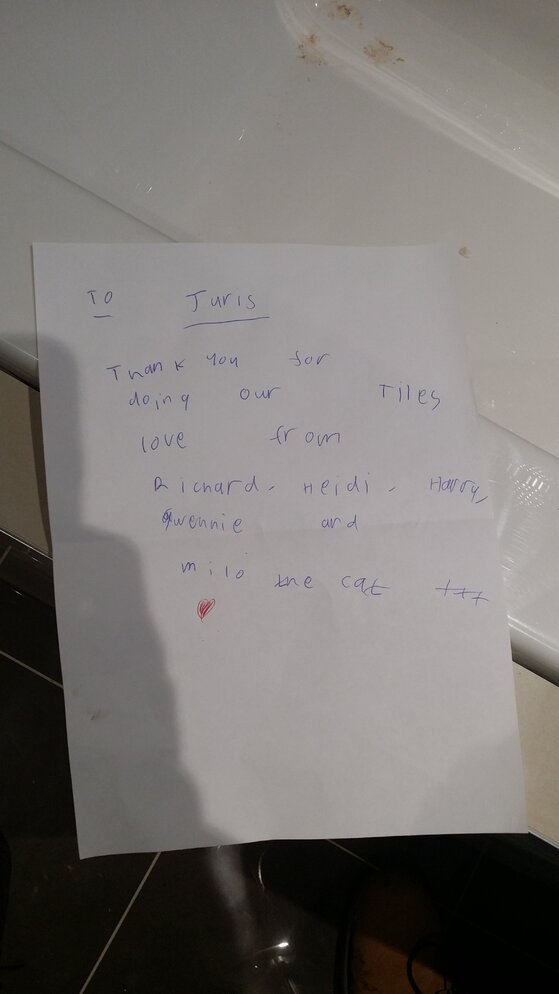 To Juris
Thank you for
doing our Tiles
love from
Richard, Heidi, Harry,
Gwennie and
milo the cat xxx